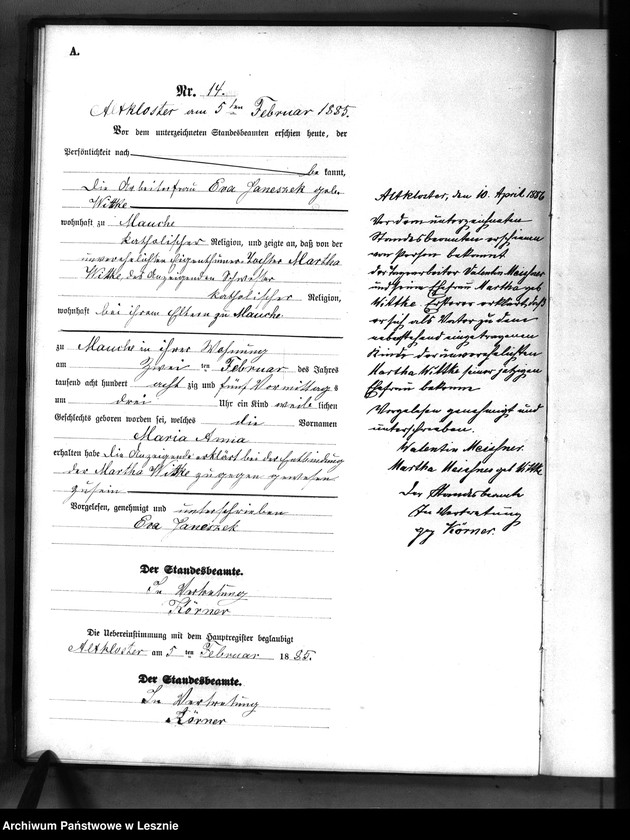 A.
Nr. 14.
Altkloster am 5ten Februar 1885.
Vor dem unterzeichneten Standesbeamten erschien heute, der
Persönlichkeit nach
be kannt,
die Arbeiterfrau Eva Janeszek geb.
Wittke
wohnhaft zu Mauche
katholischer Religion, und zeigte an, daß von der
unverehelichten Eigenthümer Tochter Martha
Wittke, der Anzeigenden Schwester
katholischer Religion,
wohnhaft bei ihren Eltern zu Mauche
zu Mauche in ihrer Wohnung
am zwei ten Februar des Jahres
tausend acht hundert acht zig und fünf Vormittag s
um drei Uhr ein Kind weib lichen
Geschlechts geboren worden sei, welches die Vornamen
Maria Anna
erhalten habe die Anzeigende erklärt bei der Entbindung
der Martha Wittke zugegen gewesen
zu sein.
Vorgelesen, genehmigt und unterschrieben
Eva Janeszek
Der Standesbeamte.
In Vertretung
Körner
Die Uebereinstimmung mit dem Hauptregister beglaubigt
Altkloster am 5 ten Februar 1885.
Der Standesbeamte.
In Vertretung
Körner
Altkloster, den 10. April 1886
Vor dem unterzeichneten
Standesbeamten erschienen
von Person bekannt
der Tagearbeiter Valentin Meissner
und seine Ehefrau Martha geb
Wittke Ersterer erklärt, daß
er sich als Vater zu dem
nebenstehend eingetragenen
Kinde der unverehelichten
Martha Wittke seiner jetzigen
Ehefrau bekenne
Vorgelesen genehmigt und
unterschrieben.
Valentin Meissner.
Martha Meissner geb Wittke
Der Standesbeamte
In Vertretung
gez Körner.
Archiwum Państwowe w Lesznie